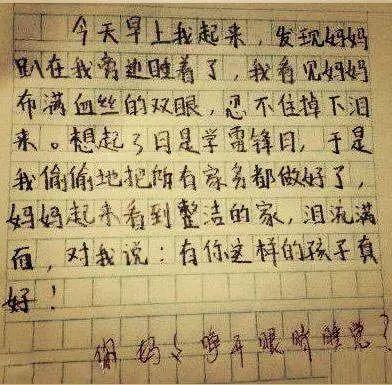 今天早上我起来，发现妈妈
趴在我旁边睡着了，我看见妈妈
布满血丝的双眼，忍不住掉下泪
来。想起3日是学雷锋日，于是
我偷偷地把所有家务都做好了，
妈妈起来看到整洁的家，泪流满
面，对我说：有你这样的孩子真
好！
你妈々睁开眼睛睡觉？